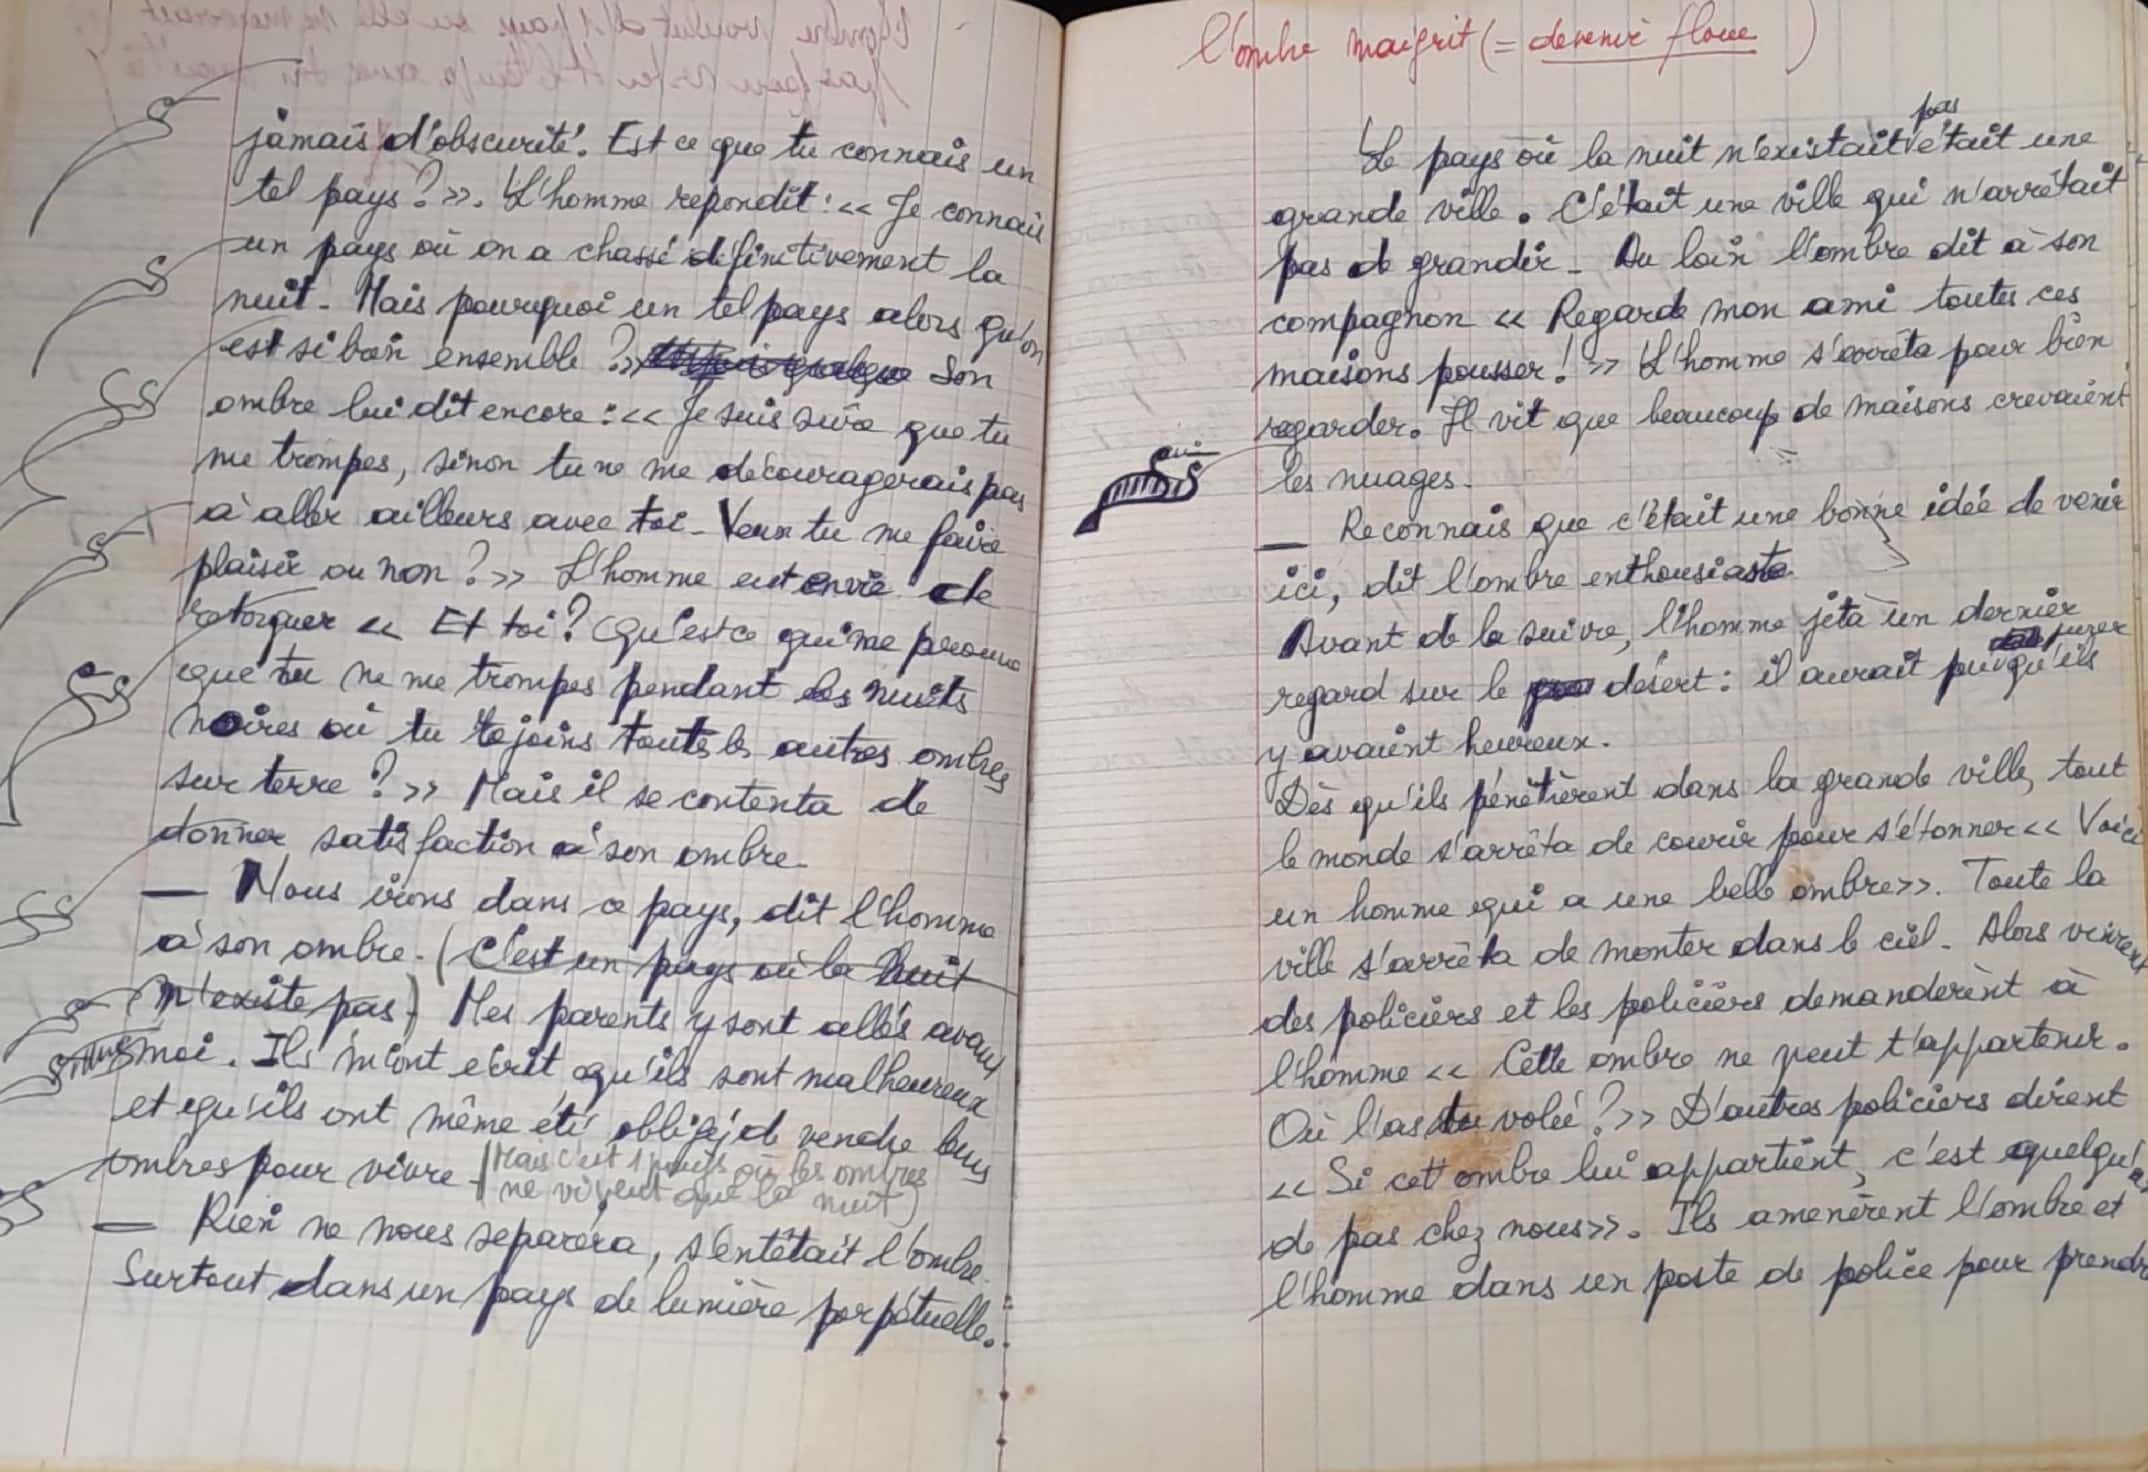 jamais d'obscurité. Est ce que tu connais un
tel pays ? ». L'homme repondit : « Je connais
un pays où on a chassé définitivement la
nuit. Mais pourquoi un tel pays alors qu'on
est si bien ensemble ? » Son
ombre lui dit encore : « Je suis sûre que tu
me trompes, sinon tu ne me découragerais pas
à aller ailleurs avec toi. Veux tu me faire
plaisir ou non ? » L'homme eut envie de
retorquer « Et toi ? Qu'est ce qui me prouve
que tu ne me trompes pendant les nuits
noires où tu rejoins toutes les autres ombres
sur terre ? » Mais il se contenta de
donner satisfaction à son ombre.
— Nous irons dans ce pays, dit l'homme
à son ombre. (C'est un pays où la nuit
n'existe pas) Mes parents y sont allés avant
moi. Ils m'ont ecrit qu'ils sont malheureux
et qu'ils ont même été obligé de vendre leurs
ombres pour vivre. (Mais c'est 1 pays où les ombres
ne vivent que la nuit)
— Rien ne nous separera, s'entêtait l'ombre.
Surtout dans un pays de lumière perpétuelle.
l'ombre maigrit (= devenir floue)
pas
Le pays où la nuit n'existait était une
grande ville. C'était une ville qui n'arrêtait
pas de grandir. Au loin l'ombre dit à son
compagnon « Regarde mon ami toutes ces
maisons pousser ! » L'homme s'arrêta pour bien
regarder. Il vit que beaucoup de maisons crevaient
les nuages.
— Reconnais que c'était une bonne idée de venir
ici, dit l'ombre enthousiaste.
Avant de la suivre, l'homme jeta un dernier
jurer
regard sur le désert : il aurait pu qu'ils
y avaient heureux.
Dès qu'ils pénétrèrent dans la grande ville, tout
le monde s'arrêta de courir pour s'étonner « Voici
un homme qui a une belle ombre ». Toute la
ville s'arrêta de monter dans le ciel. Alors vinrent
des policiers et les policiers demandèrent à
l'homme « Cette ombre ne peut t'appartenir.
Où l'as tu volée ? » D'autres policiers dirent
« Si cett ombre lui appartient, c'est quelqu'un
de pas chez nous ». Ils amenèrent l'ombre et
l'homme dans un poste de police pour prendre